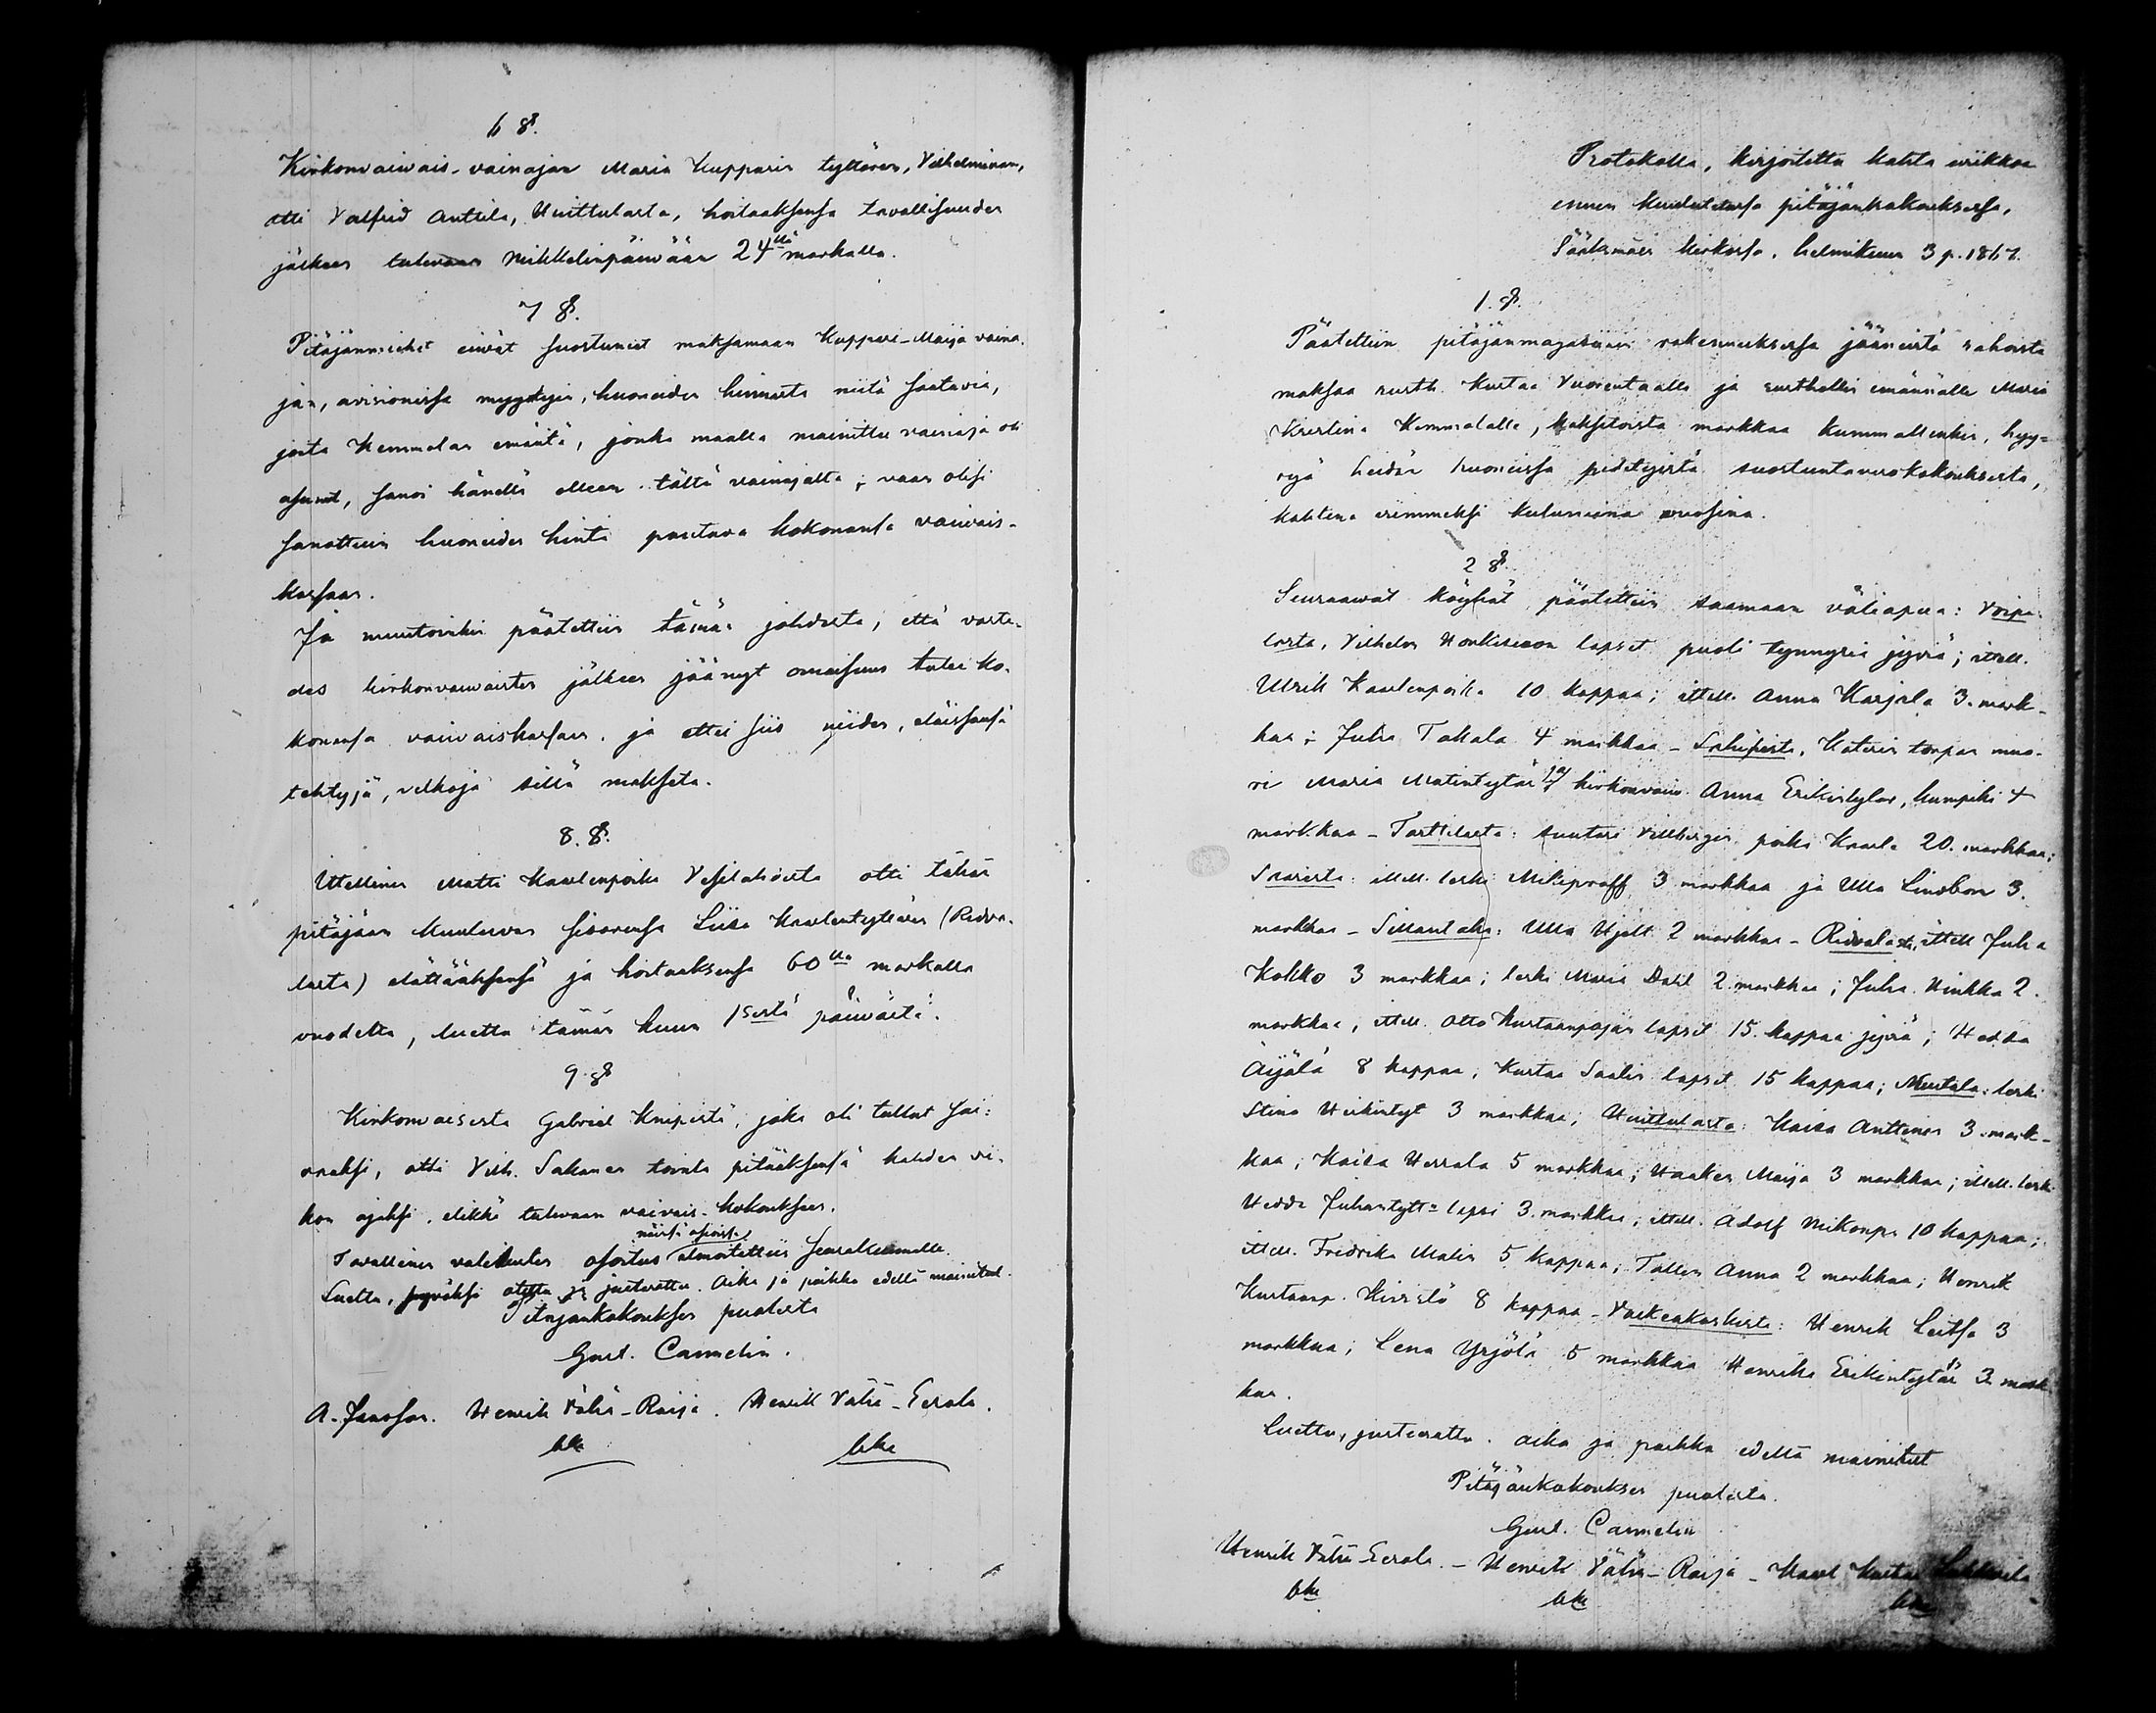 6 §.
Kirkonvaivais-vainajan Maria Kupparin tyttären, Vilhelminan,
otti Valfrid Anttila, Uittulasta, hoitaaksensa tavallisuuden
jälkeen tulevaan Mikkelinpäivään 24llä markalla.
7 §.
Pitäjänmiehet eivät suostuneet maksamaan Kuppari-Maija vaina-
jan, avisionissa myydtyjen, huoneiden hinnasta niitä saatavia,
joita Kemmolan emäntä, jonka maalla mainittu vainaja oli
asunut, sanoi hänellä olleen tältä vainajalta; vaan olisi
sanottuin huoneiden hinta pantava kokonansa vaivais-
kassaan.
Ja muutoinkin päätettiin tämän johdosta, että vasta-
des kirkonvaivaisten jälkeen jäänyt omaisuus tulee ko-
konansa vaivaiskassaan, ja ettei siis niiden, eläissänsä
tehtyjä, velkoja sillä makseta.
8. §.
Ittellinen Matti Kaarlenpoika Vesilahdesta otti tähän
pitäjään kuuluvan sisarensa Liisa Kaarlentyttären (Ridva-
lasta) elättääksensä ja hoitaaksensa 60lla markalla
vuodelta, luettu tämän kuun 1sestä päivästä.
9. §
Kirkonvaisesta Gabriel Knipistä, joka oli tullut sai-
raaksi, otti Vilh. Sakanen toimta pitääksensä kahden vi-
kon ajaksi, elikkä tulevaan vaivais-kokoukseen.
näissä asioissa
Tavallinen valituksen osoitus ilmoitettiin seurakunnalle.
Luettu, hyväksi otettu ja justerattu. Aika ja paikka edellä mainitut.
Pitäjänkokouksen puolesta
Gust. Cannelin.
A. Jansson. Henrik Vähä-Raija. Henrik Vähä-Eerola.
lke lke
Protokolla, kirjoitettu kahta wiikkoa
ennen kuulutetussa pitäjänkokouksessa,
Sääksmäen kirkossa, helmikuun 3 p. 1867.
1. §.
Päätettiin pitäjänmagasiinin rakennuksessa jääneistä rahoista
maksaa rusth. Kustaa Vuorentaalle ja rusthollin emännälle Maria
Kristina Kemmolalle, kaksitoista markkaa kummallenkin, hyy-
ryä heidän huoneissa pidetyistä suostuntaverokokouksista,
kahtena viimmeksi kuluneina vuosina.
2 §
Seuraawat köyhät päätettiin saamaan väliapua: Voipa-
lasta, Vilhelm Honkisen lapset puoli tynnyriä jyviä; ittell.
Ulrik Kaarlenpoika 10 kappaa; ittell. Anna Karjala 3. mark-
kaa; Juha Takala 4 markkaa - , torpan muo-
ri Maria Matintytär ja kirkonvaiv. Anna Erikintytär, kumpiki 4
markkaa - Tarttilasta: suutari Villbergin poika Kaarlo 20. markkaa;
Saarista: ittell. leski 3 markkaa ja Ulla Lindbom 3.
markkaa - : Ulla Hjelt 2 markkaa - Ridvalasta, ittell Juha
Kokko 3 markkaa; leski Maria Dahl 2 markkaa; Juha Hinkka 2.
markkaa, ittell. Otto Kustaanpojan lapset 15. kappaa jyviä; Hedda
Äijälä 8 kappaa; Kustaa Saalin lapset 15 kappaa; : leski
Stina Heikintyt 3 markkaa; Huittulasta: Kaisa Anttinen 3. mark-
kaa; Kaisa Herrala 5 markkaa; Haaken Maija 3 markkaa; ittell. leski
Hedda Juhantytt= lapsi 3. markkaa; ittell. Adolf Mikonpr 10 kappaa;
ittell. Fredrika Malin 5 kappaa; Tallin Anna 2 markkaa; Henrik
Kustaanp. Kivistö 8 kappaa - Valkeakoskista: Henrik Leitsa 3
markkaa; Lena Yrjölä 5 markkaa Henrika Erikintytär 3 mark-
kaa.
Luettu, justerattu. Aika ja paikka edellä mainitut
Pitäjänkokouksen puolesta.
Gust. Cannelin
Henrik Vähä-Eerola. - Henrik Vähä-Raija - Kaarl Kustaa
lke lke lke